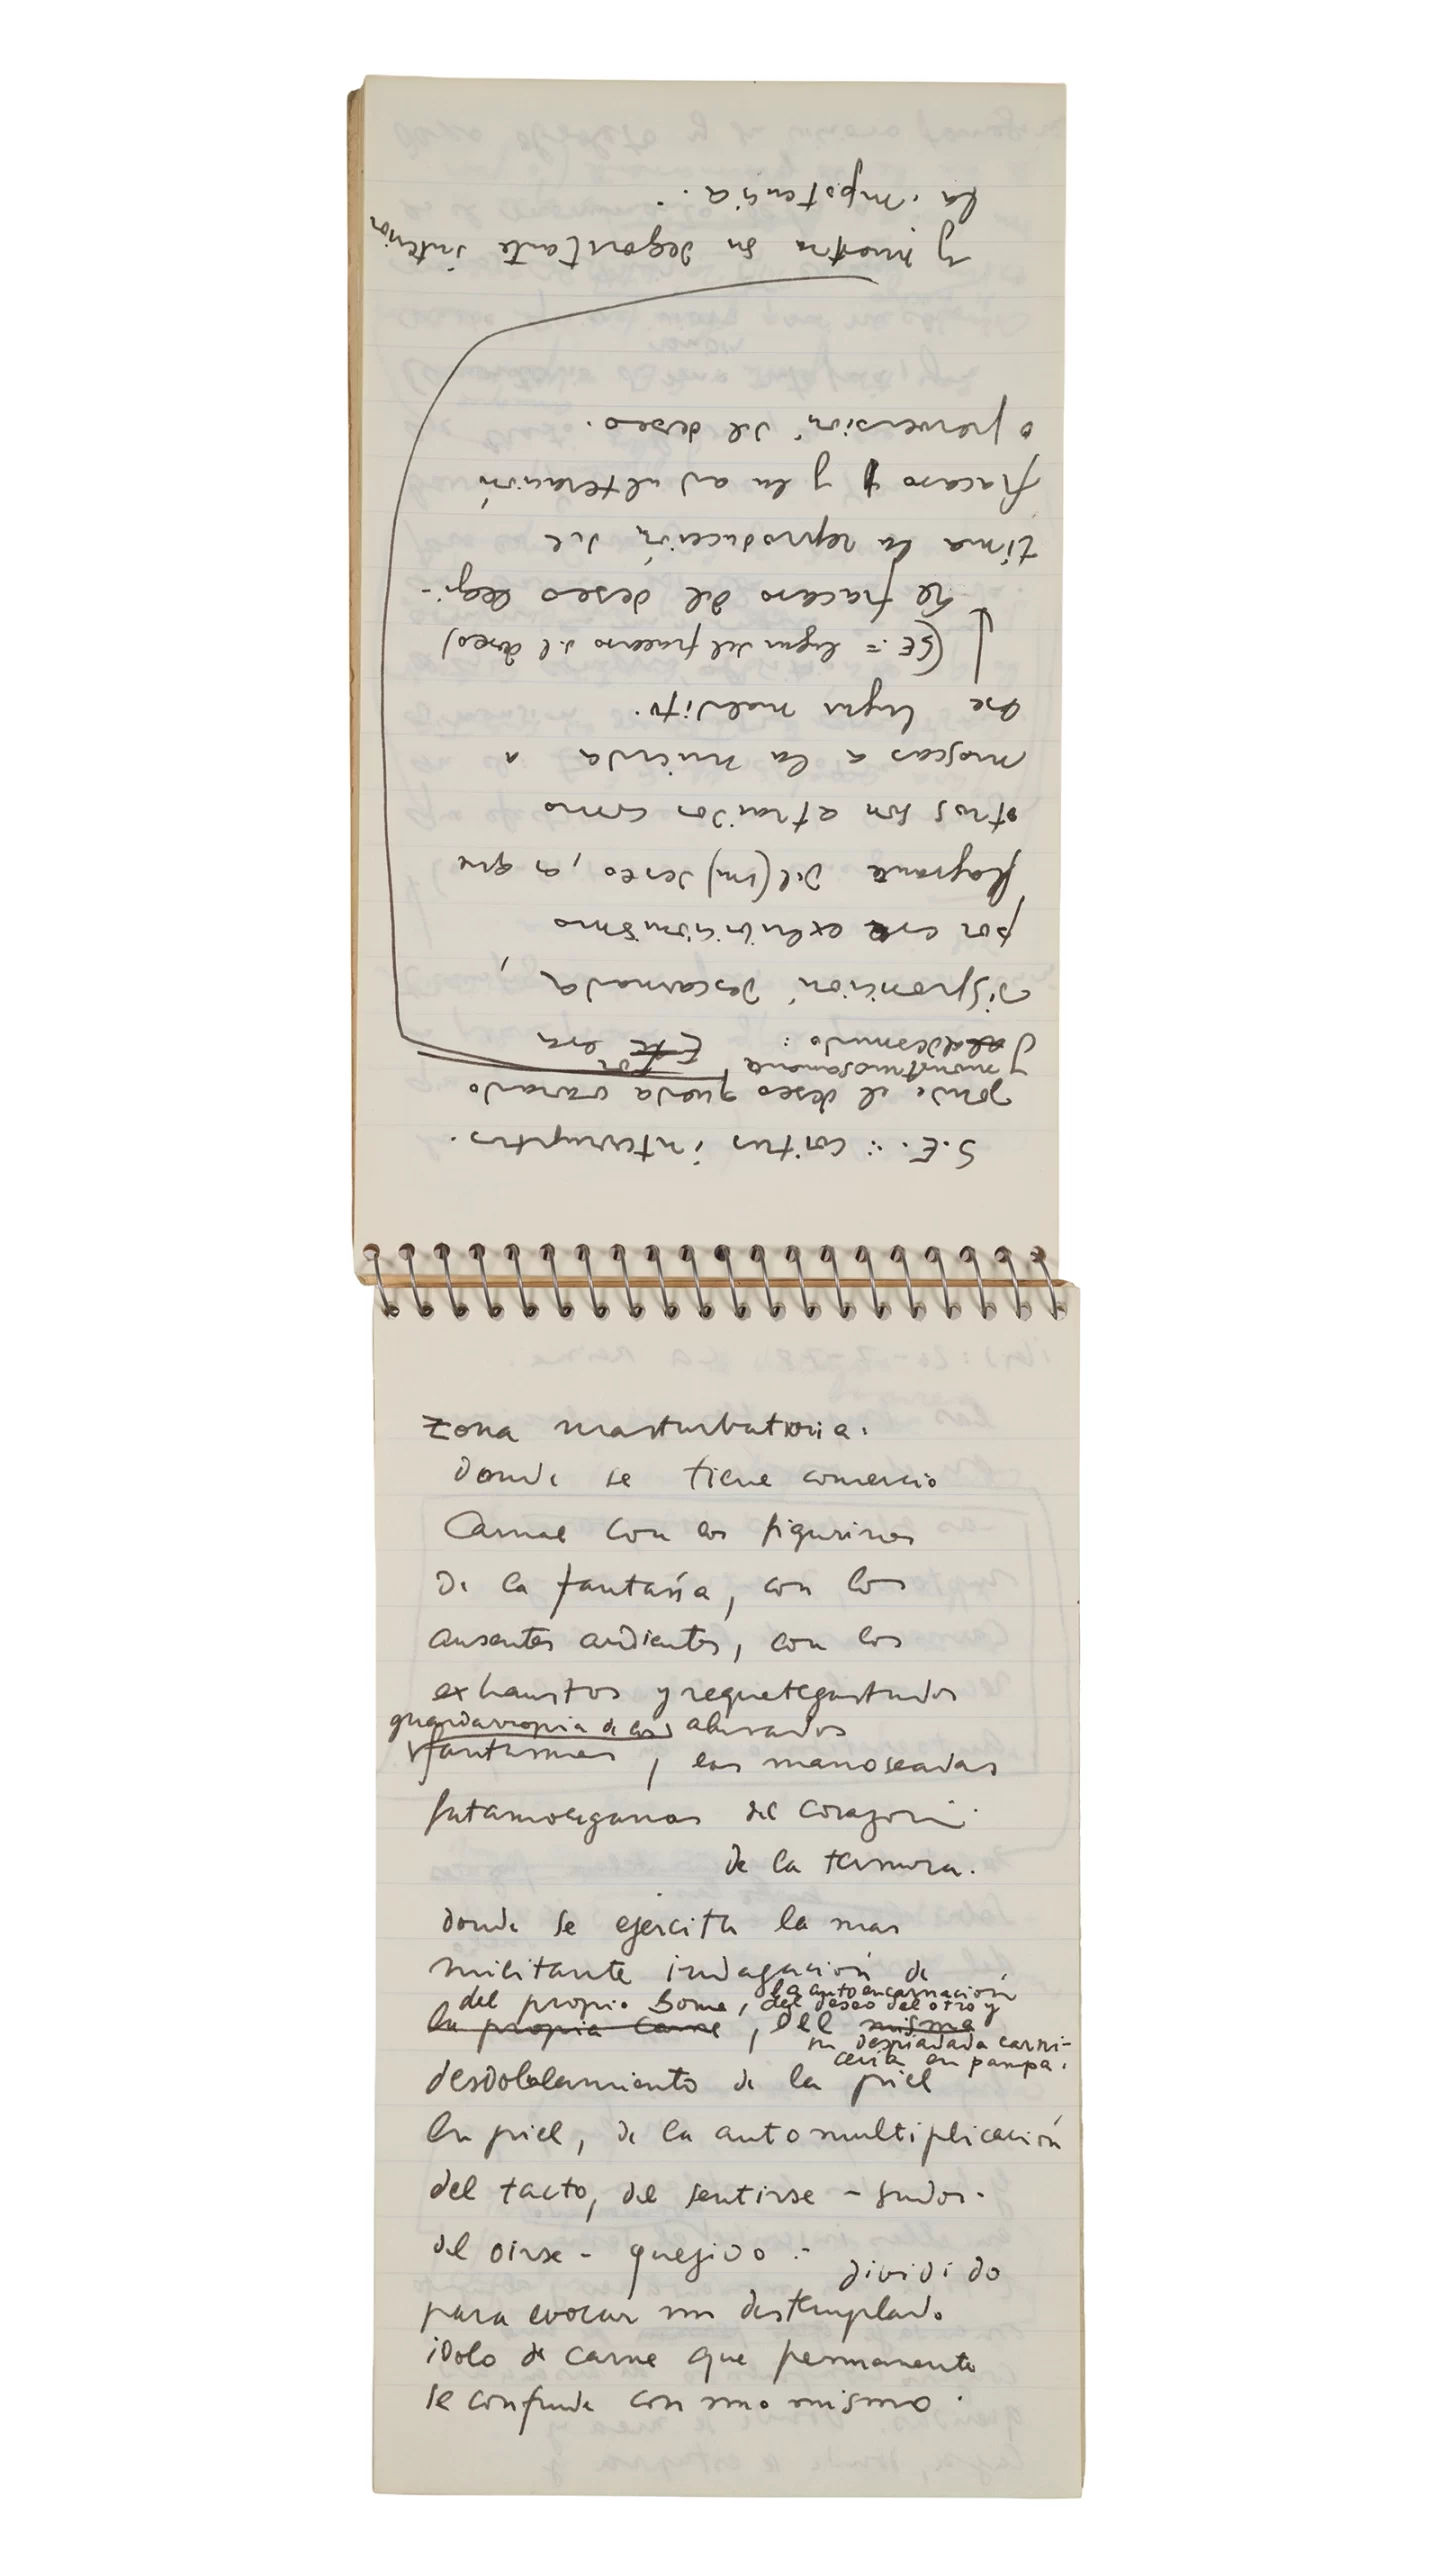 S.E. : coitus interruptus.
donde el deseo queda varado
y monstruosamente
al desnudo : Este por esa
disposición descarnada,
por ese exhibicionismo
flagrante del (su) deseo, es que
otros son atraídos como
moscas a la mierda a
ese lugar maldito.
(SE = lugar del fracaso del deseo)
El fracaso del deseo legi-
tima la reproducción del
fracaso y y la adulteración
o perversión del deseo.
y muestra su degoritante interior
la impotencia.
Zona masturbatoria:
donde se tiene comercio
Carnal con los figurines
de la fantasía, con los
ausentes ardientes, con los
exhaustos y requetegastados
guardarropia de los abusados
fantasmas, las manoseadas
fatamorganas del corazón
de la ternura.
donde se ejercita la mas
militante indagación de
la autoencarnación
del propio Soma, del deseo del otro y
la propia carne, del misma
su despiadada carni-
cería en pampa.
desdoblamiento de la piel
la piel, de la automultiplicación
del tacto, del sentirse - sudor -
del oirse - quejido -
dividido
para evocar un destemplado
idolo de carne que permanente
se confunde con uno mismo.